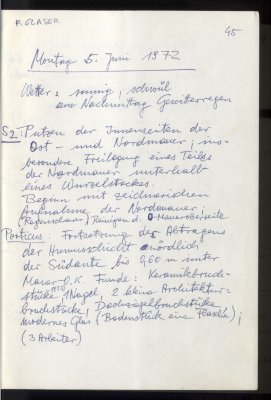 K. GLASER
45
Montag 5. Juni 1972
Wetter: sonnig, schwül
am Nachmittag Gewitterregen
S2: Putzen der Innenseiten der
Ost- und Nordmauer; ins-
besondere Freilegung eines Teiles
der Nordmauer unterhalb
eines Wurzelstockes.
Beginn mit zeichnerischen
Aufnahme der Nordmauer;
Reinigung O-Maueroberseite
Porticus: Fortsetzung des Abtragens
der Humusschicht nördlich
der Südante bis 0,60 m unter
Mauer-O.K. Funde: Keramikbruch-
stücke, 1 Nagel, 2 kleine Architektur-
bruchstücke, Dachziegelbruchstücke
modernes Glas (Bodenstück eine Flasche);
(3 Arbeiter)